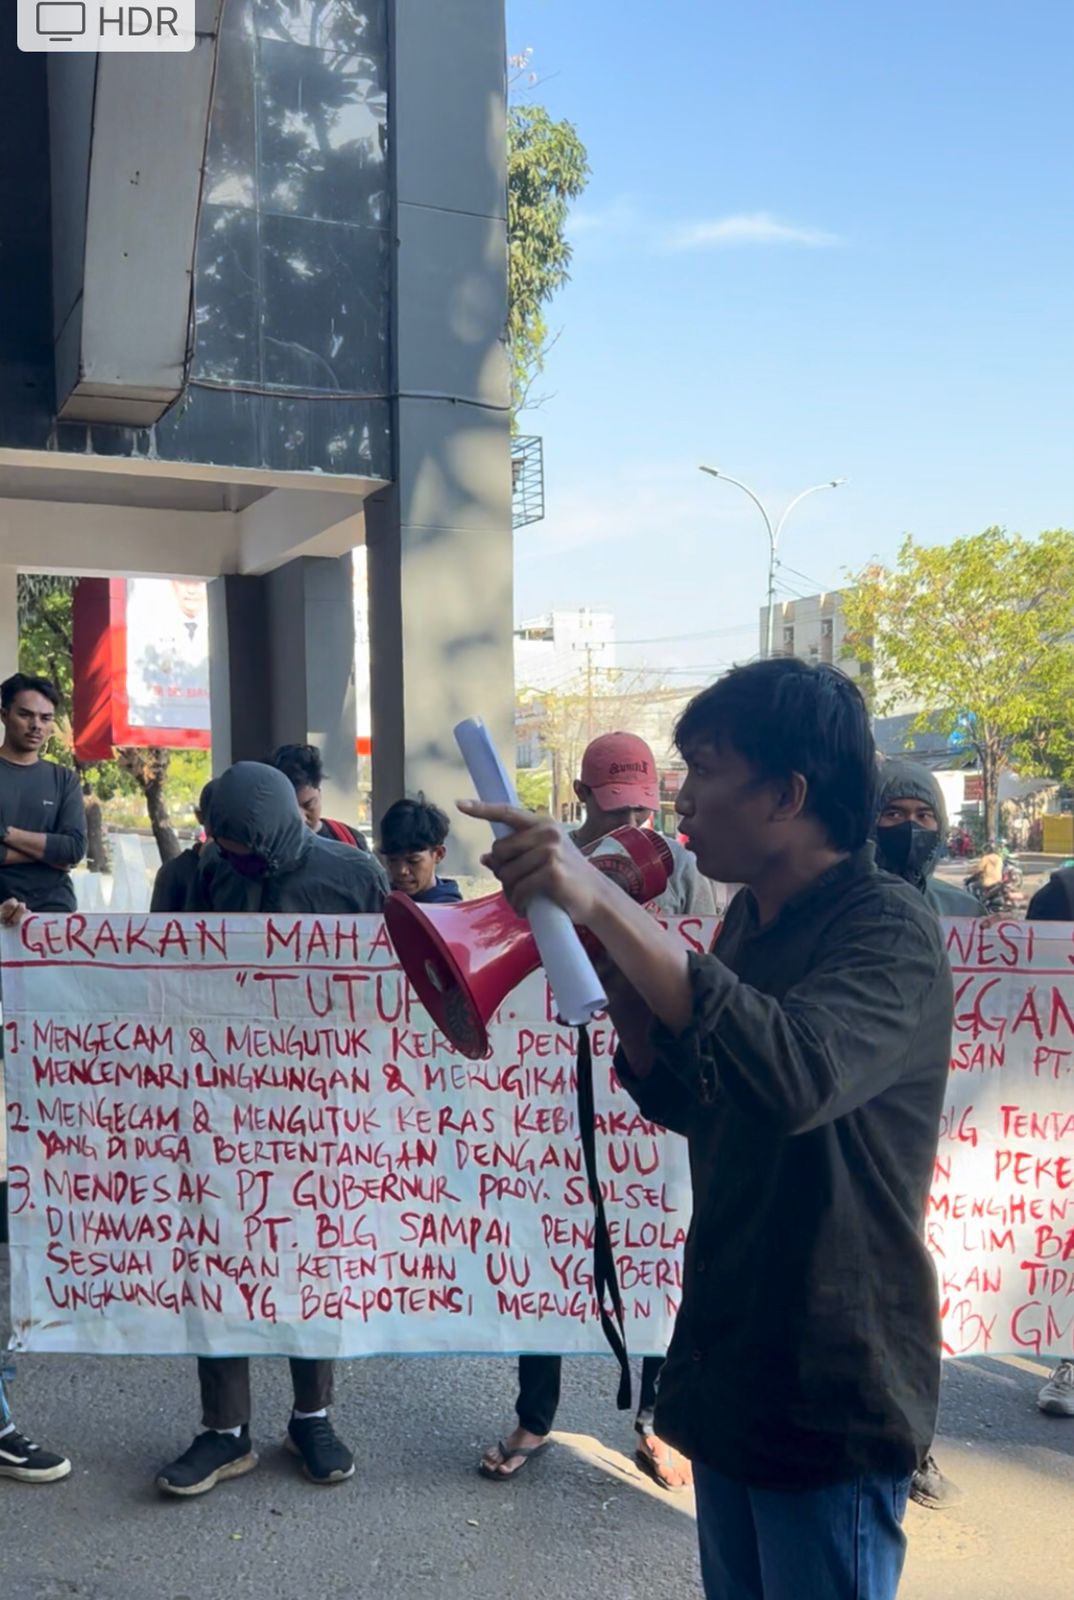 HDR
GERAKAN MAHA NESI
"TUTUP GGAN
1. MENGECAM & MENGUTUK KERAS SAN PT.
MENCEMARI LINGKUNGAN & MERUGIKAN
2. MENGECAM & MENGUTUK KERAS KEBIJAKAN BLG TENTA
YANG DI DUGA BERTENTANGAN DENGAN UU N PEKE
3. MENDESAK PJ GUBERNUR PROV. SULSEL MENGHENT
DIKAWASAN PT. BLG SAMPAI PENGELOLA & LIM BA
SESUAI DENGAN KETENTUAN UU YG BERL KAN TIDA
LINGKUNGAN YG BERPOTENSI MERUGIKAN By GM